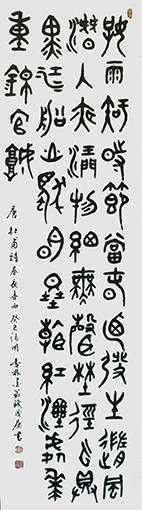 好雨知時節當春乃發生隨風
潛入夜潤物細無聲野徑雲俱
黑江船火獨明曉看紅濕處花
重錦官城
唐杜甫詩春夜喜雨癸巳清明書